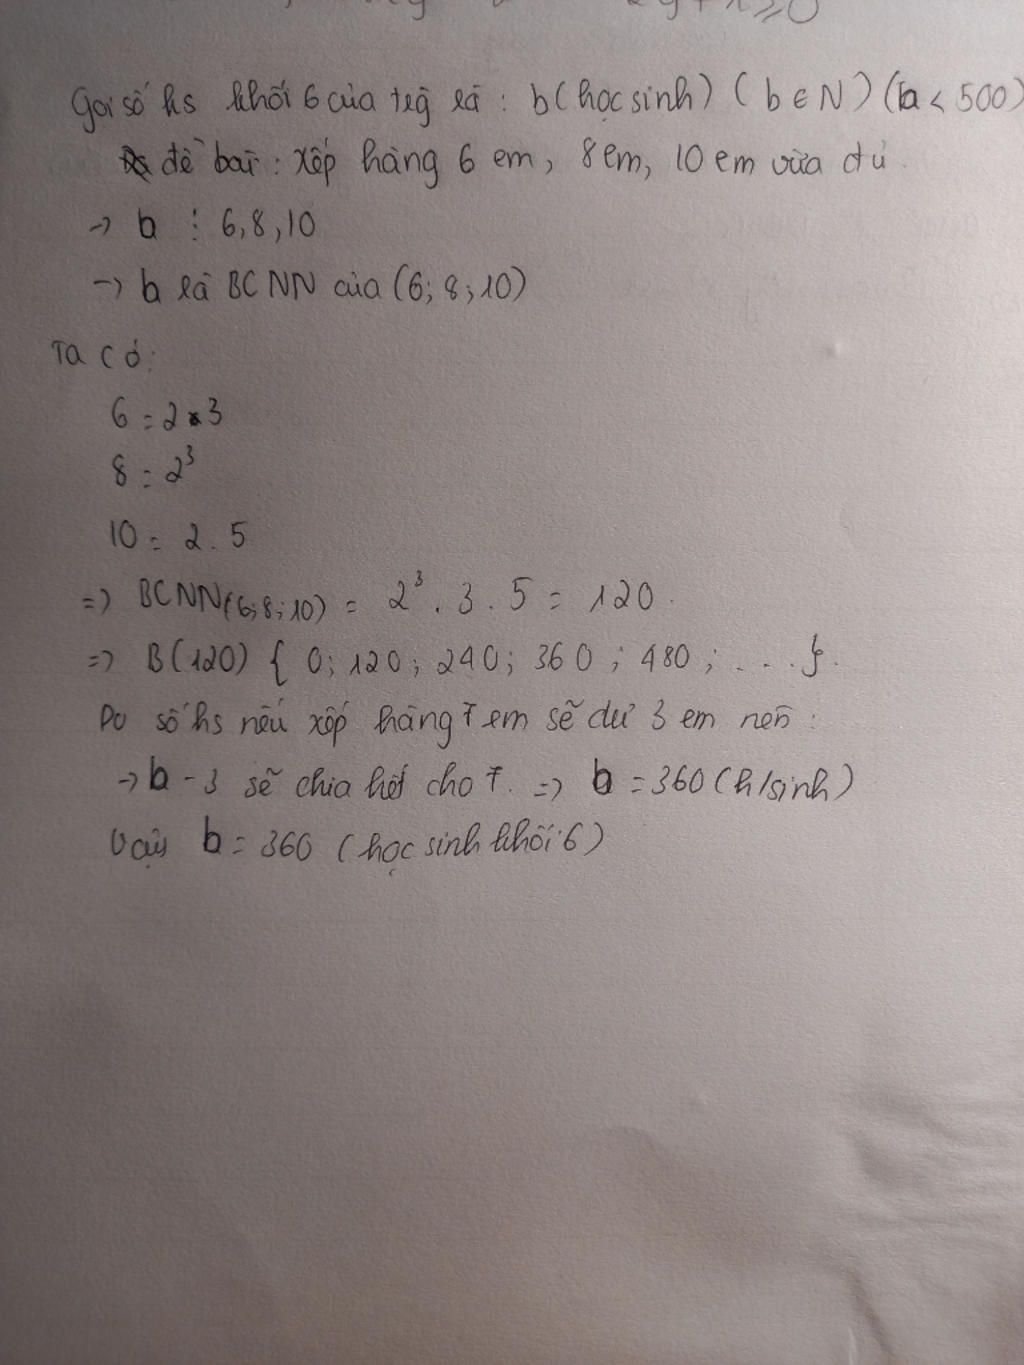 Gọi số hs khối 6 của trg là : b (học sinh) ( b ∈ N ) (b < 500)
đề bài : xếp hàng 6 em, 8 em, 10 em vừa đủ.
→ b ⋮ 6, 8, 10
→ b là BCNN của (6; 8; 10)
Ta có:
6 = 2 . 3
8 = 2³
10 = 2 . 5
=> BCNN(6; 8; 10) = 2³ . 3 . 5 = 120.
=> B(120) { 0; 120; 240; 360 ; 480 ; . . . }.
Do số hs nếu xếp hàng 7 em sẽ dư 3 em nên :
→ b - 3 sẽ chia hết cho 7. => b = 360 (h/sinh)
Vậy b = 360 (học sinh khối 6)